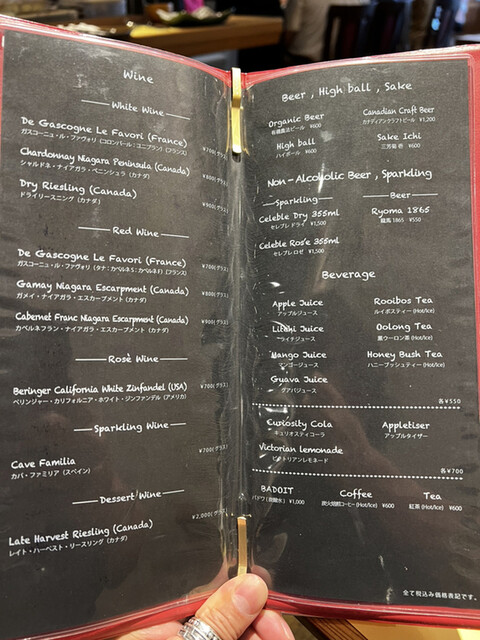 Wine
White Wine
De Gascogne Le Favori (France)
ガスコーニュ・ル・ファヴォリ (コロンバール:ユニブラン) [フランス] ¥700(グラス)
Chardonnay Niagara Peninsula (Canada)
シャルドネ・ナイアガラ・ペニンシュラ (カナダ) ¥800(グラス)
Dry Riesling (Canada)
ドライリースニング (カナダ) ¥900(グラス)
Red Wine
De Gascogne Le Favori (France)
ガスコーニュ・ル・ファヴォリ (タナ:カベルネS:カベルネF) [フランス] ¥700(グラス)
Gamay Niagara Escarpment (Canada)
ガメイ・ナイアガラ・エスカープメント (カナダ) ¥800(グラス)
Cabernet Franc Niagara Escarpment (Canada)
カベルネフラン・ナイアガラ・エスカープメント (カナダ) ¥900(グラス)
Rosè Wine
Beringer California White Zinfandel (USA)
ベリンジャー・カリフォルニア・ホワイト・ジンファンデル (アメリカ) ¥700(グラス)
Sparkling Wine
Cave Familia
カバ・ファミリア (スペイン) ¥700(グラス)
Dessert Wine
Late Harvest Riesling (Canada)
レイト・ハーベスト・リースリング (カナダ) ¥2,000(グラス)
Beer , High ball , Sake
Organic Beer Canadian Craft Beer
有機農法ビール ¥600 カナディアンクラフトビール ¥1,200
High ball Sake Ichi
ハイボール ¥600 三芳菊 壱 ¥600
Non-Alcoholic Beer , Sparkling
Sparkling Beer
Celeble Dry 355ml Ryoma 1865
セレブレ ドライ ¥1,500 龍馬 1865 ¥550
Celeble Ros'e 355ml
セレブレ ロゼ ¥1,500
Beverage
Apple Juice Rooibos Tea
アップルジュース ルイボスティー (Hot/Ice)
Litchi Juice Oolong Tea
ライチジュース 黒ウーロン茶 (Hot/Ice)
Mango Juice Honey Bush Tea
マンゴージュース ハニーブッシュティー (Hot/Ice)
Guava Juice
グアバジュース
各¥550
Curiosity Cola Appletiser
キュリオスティコーラ アップルタイザー
Victorian lemonade
ビクトリアンレモネード
各¥700
BADOIT Coffee Tea
バドワ (炭酸水) ¥1,000 炭火焙煎コーヒー (Hot/Ice) ¥600 紅茶 (Hot/Ice) ¥600
全て税込み価格表記です。